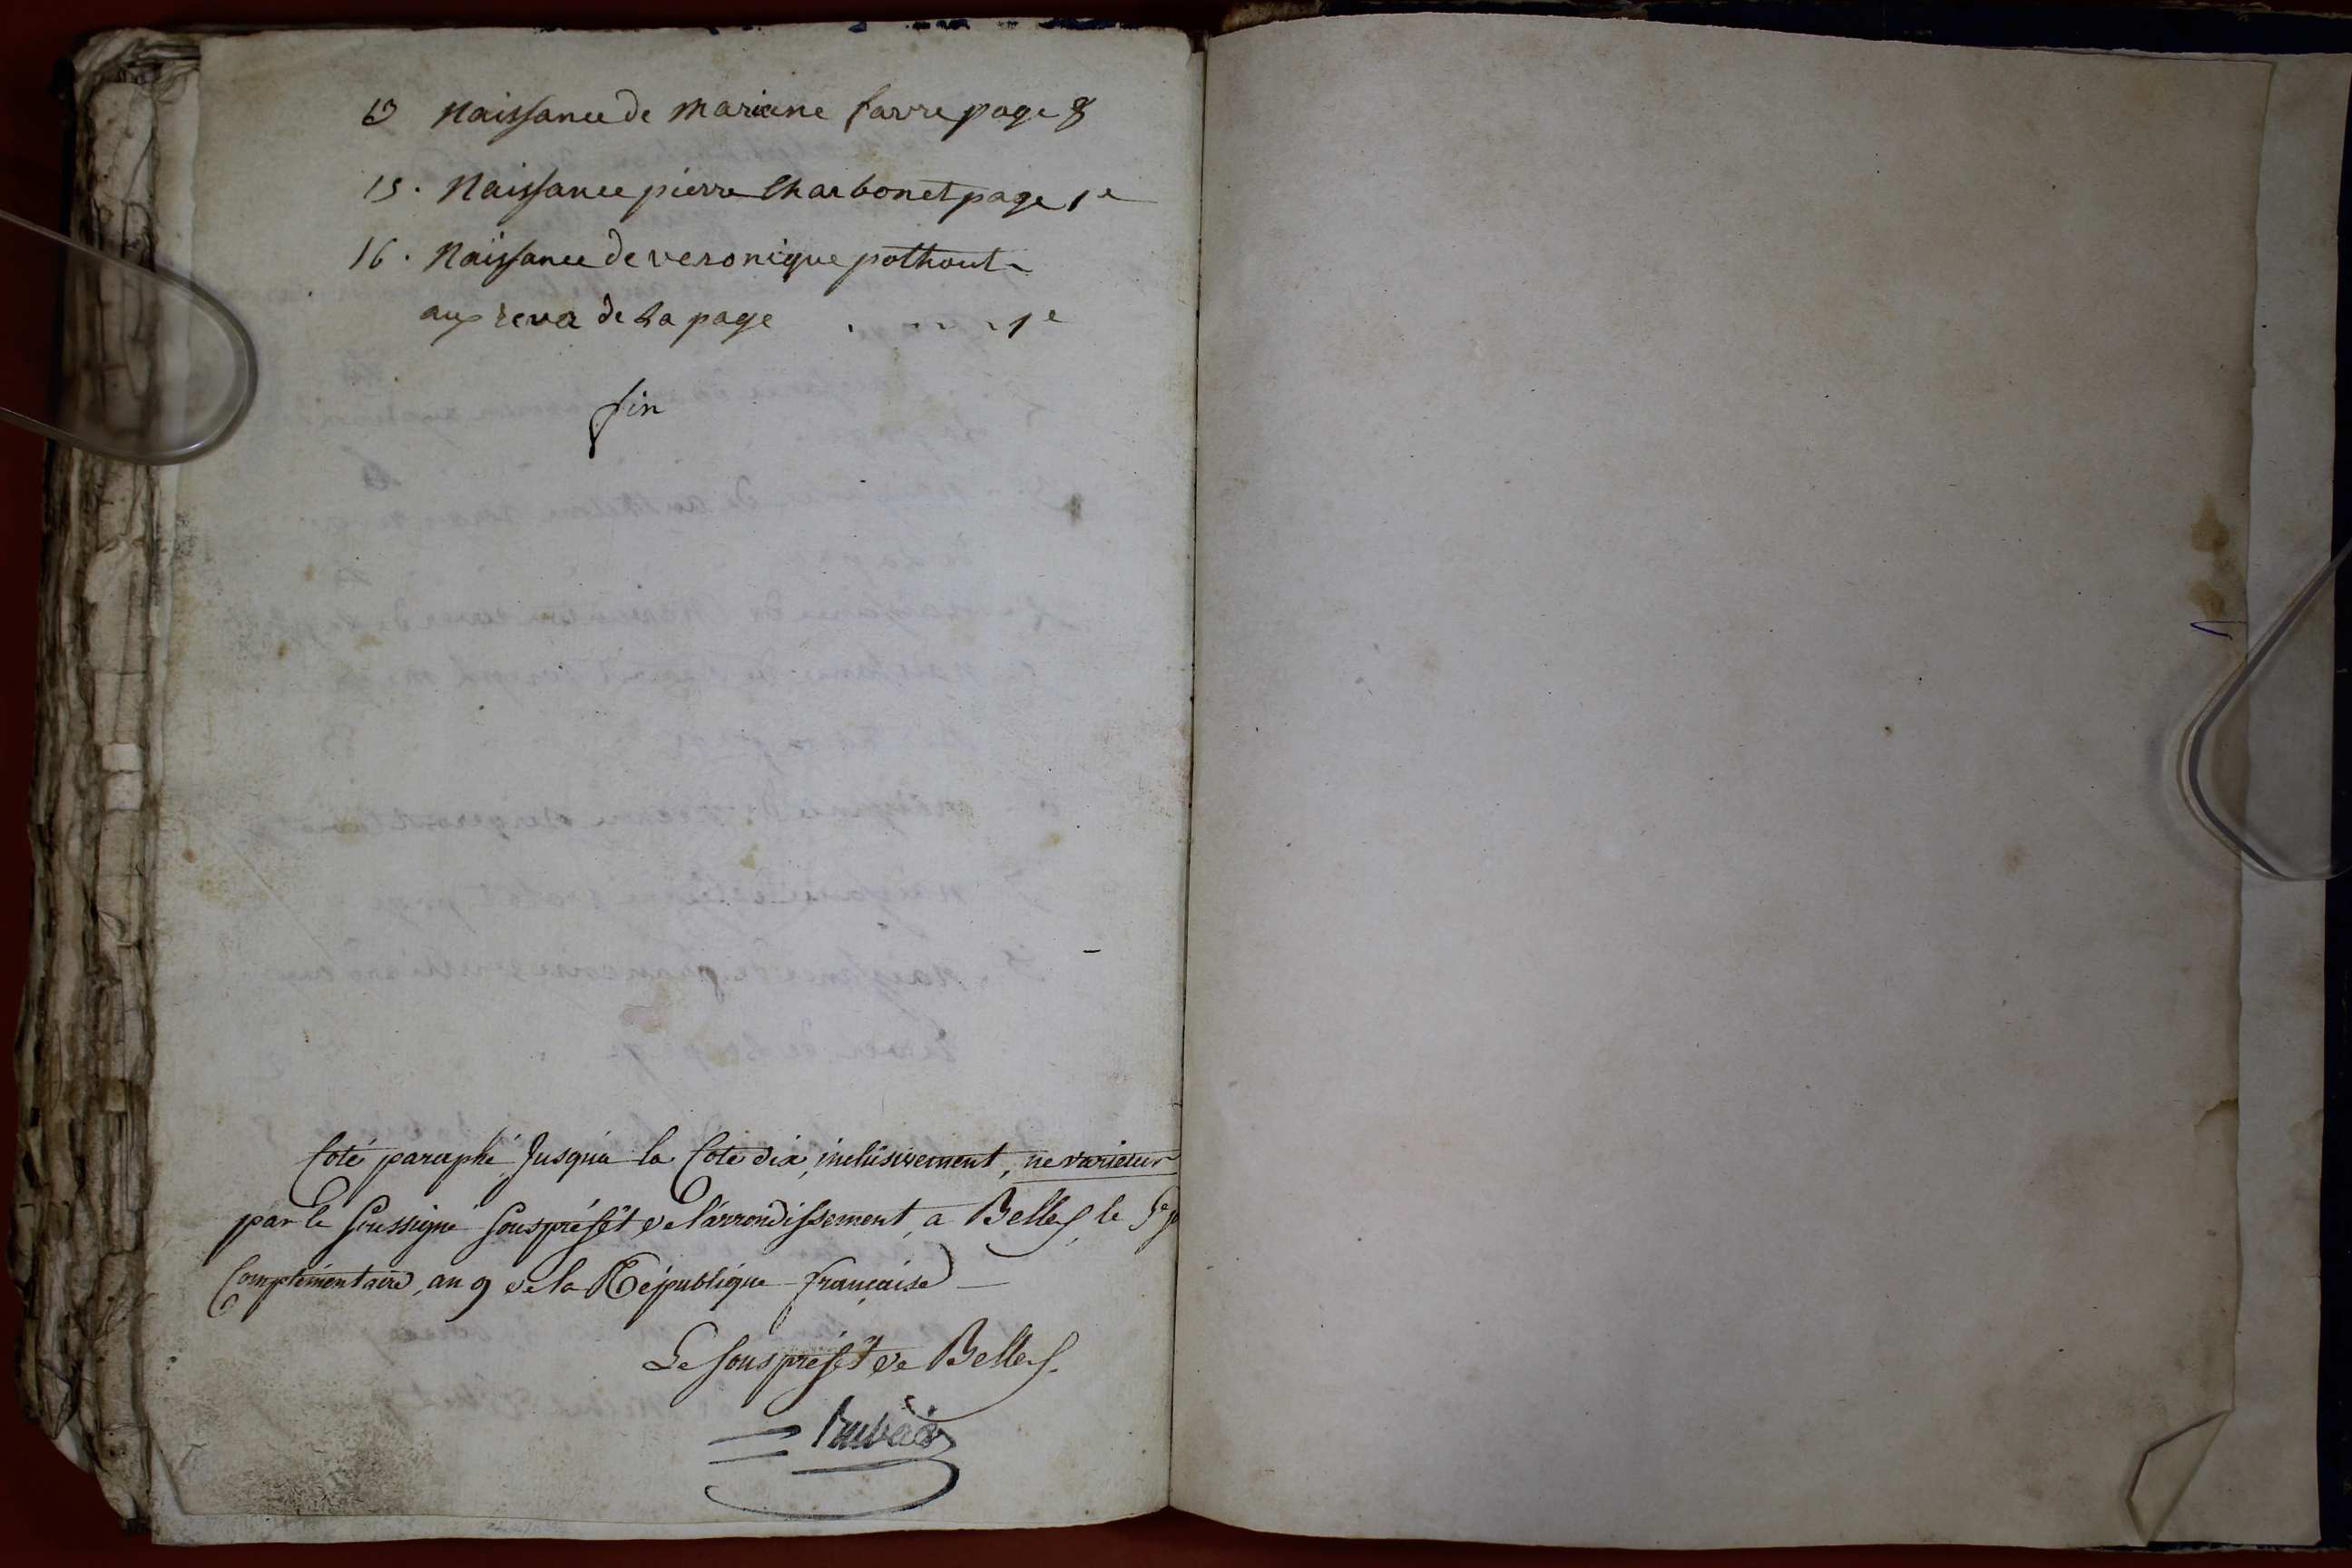 13 Naissance de mariane favre page 8
15. Naissance pierre Charbonet page 1e
16. Naissance de veronique pothout
aux rever de La page . . . . 1e
fin
Coté paraphé, Jusqu'à la Cote dix, inclusivement, ne varietur
par le Soussigné Souspréfêt de l'arrondissement, a Belley, le 5e
Complémentaire, an 9 de la République française
Le Souspréfêt de Belley.